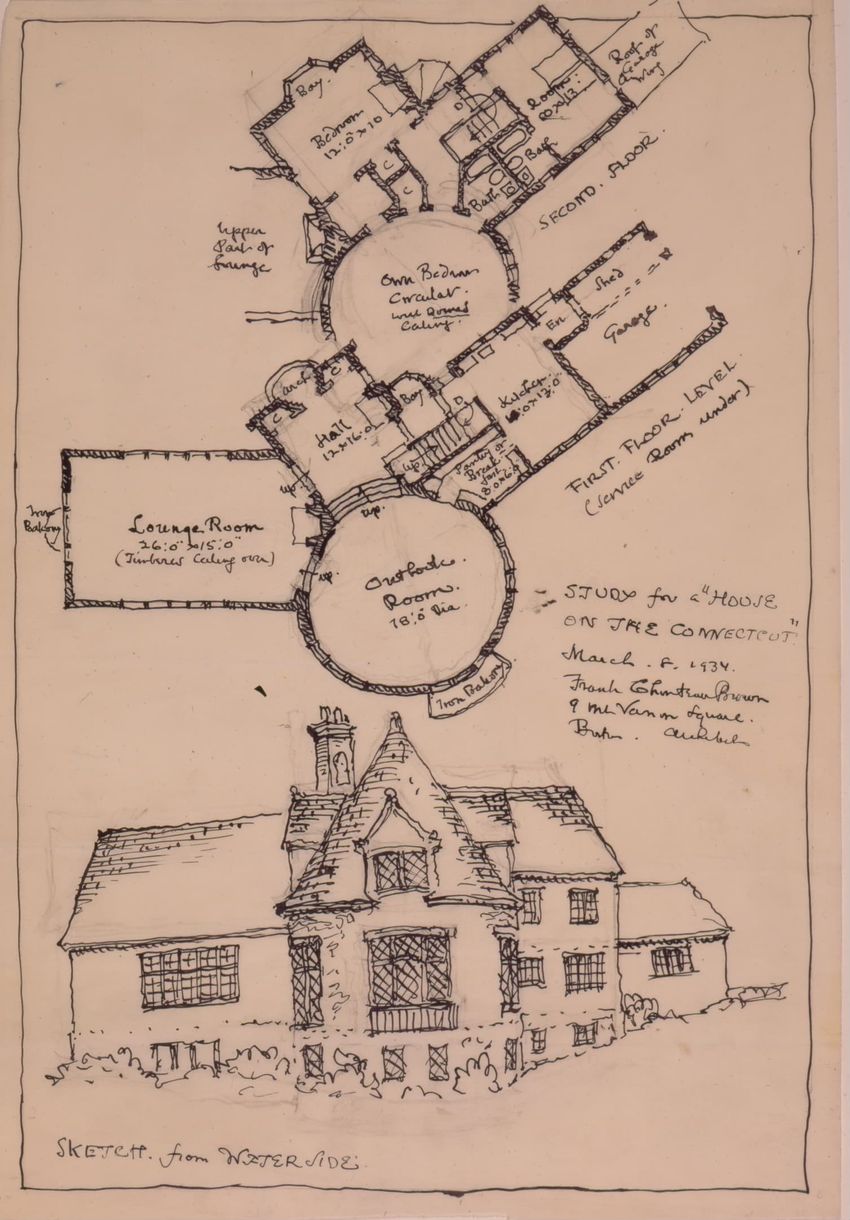 Bay.
Bedroom
12'.0" x 10
C
C
D
Room:
x 13.
Bath
Bath
Roof of
Garage
Wing
SECOND. FLOOR.
Upper
Part of
Lounge
Own Bedrm
Circular.
with Domed
Ceiling.
arch
C
C
Hall
12 x 16.0
Bay
D
Kitchen.
En
Shed
Garage.
up.
up.
up.
up.
Pantry or
Break
fast
8.0 x 6.0
FIRST. FLOOR. LEVEL.
(Service Room under)
Iron
Balcony
Lounge Room
26'.0" x 15'.0"
(Timbered Ceiling over)
Outlook.
Room.
18'.0" Dia.
Iron Balcony
STUDY for a "HOUSE
ON THE CONNECTICUT"
March. 8. 1934.
Frank Chouteau Brown
9 Mt Vernon Square.
Boston. Architect
SKETCH. from WATERSIDE.